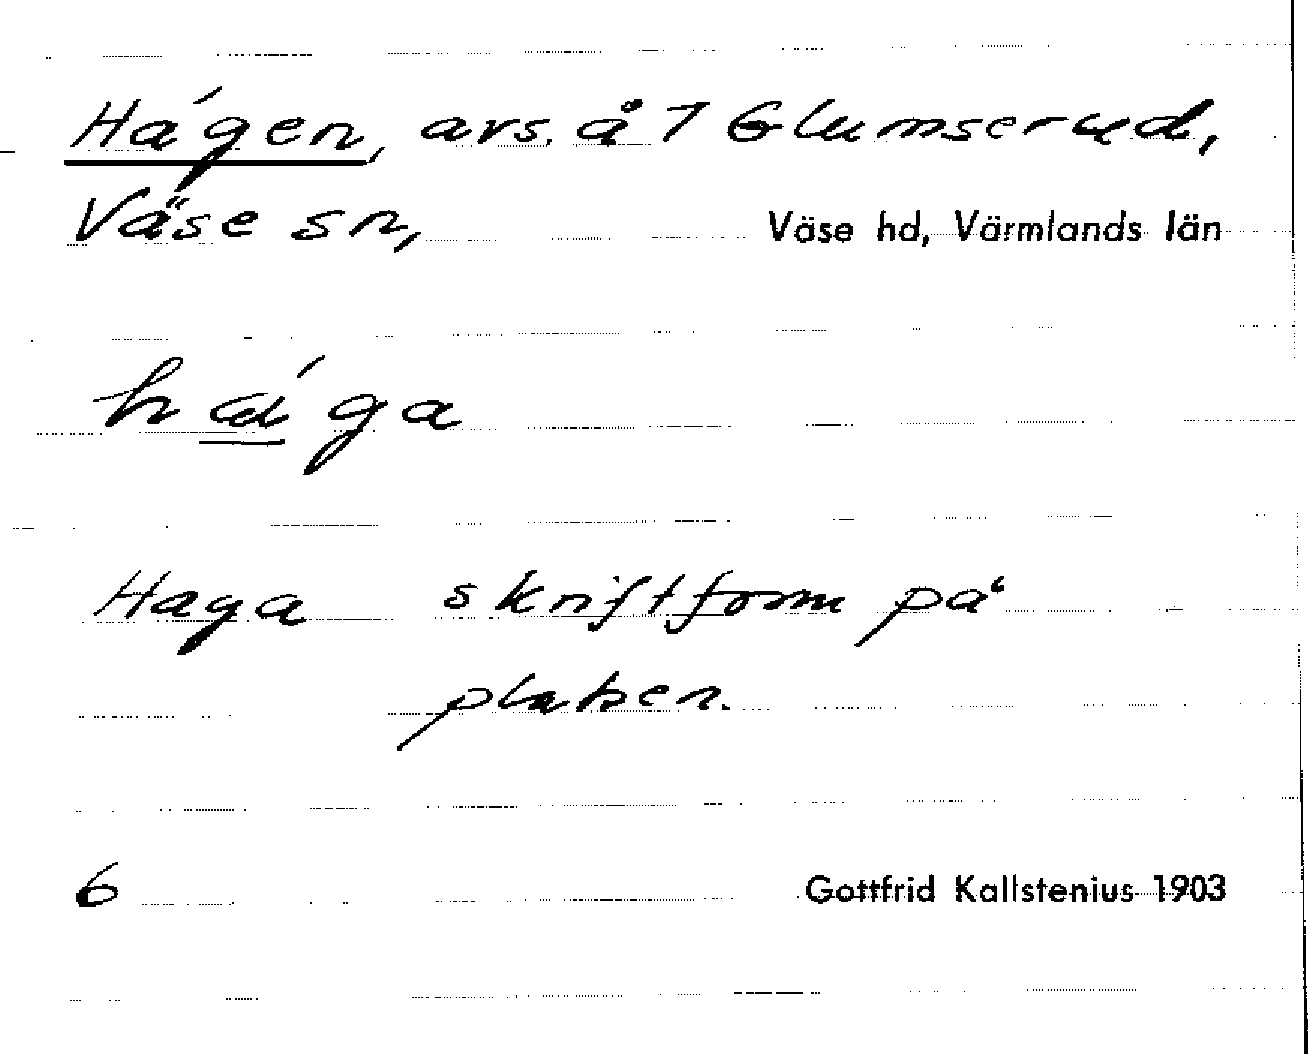 Há́gen, avs. å 7 Glumserud,
Väse sn, Väse hd, Värmlands län
hàga
Haga skriftform på
platsen.
6 Gottfrid Kallstenius 1903